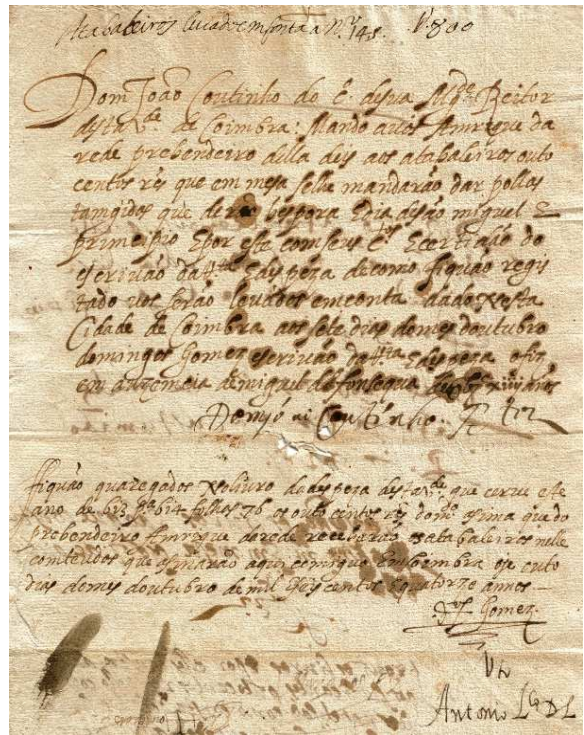 Atabaleiros levados em conta a N. 145. V.800
Dom João Coutinho do C. de sua Mg.de Reitor
desta V.de de Coimbra: Mando a vos Amrique da
rede prebendeiro della deis aos atabaleiros outo
centos rẽs que em mesa selhe mandarão dar pollos
tamgidos que derão bespora E dia de são miguel E
primcipio E por este com seus C.tos E certidão do
escrivão da fta E despeza de como fiquão regis
tado vos serão levados em conta dado nesta
Cidade de Coimbra aos sete dias do mes doutubro
domingos Gomez escrivão da fta E despeza o fiz
em auzemcia de miguel da fonsequa
Dom Jo Coutinho R.tor
fiquão quaregados no livro da despeza desta V.de que cerve este
ano de 613 p.a 614 folhas 76 os outo centos rẽs do m.do asima que do
prebendeiro Amrique da rede receberão os atabaleiros nelle
comteudos que asinarão aqui comigo em Coimbra oje outo
dias do mes doutubro de mil E seis centos E quatorze annos
Gomez
Antonio